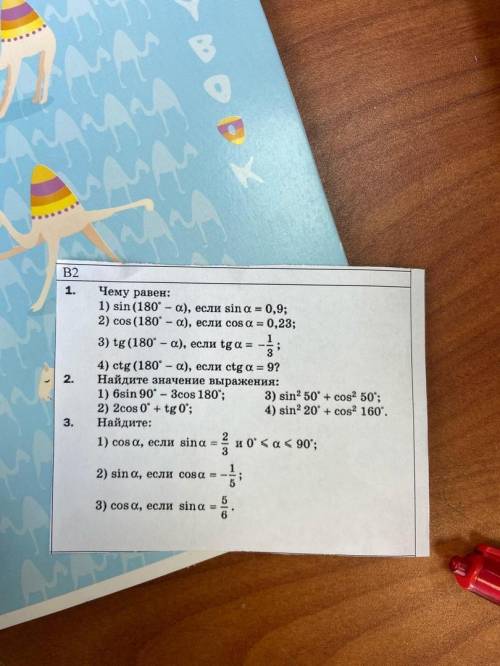 Y
B
O
O
K
B2
1. Чему равен:
1) sin (180° – α), если sin α = 0,9;
2) cos (180° – α), если cos α = 0,23;
3) tg (180° – α), если tg α = –1/3;
4) ctg (180° – α), если ctg α = 9?
2. Найдите значение выражения:
1) 6sin 90° – 3cos 180°; 3) sin² 50° + cos² 50°;
2) 2cos 0° + tg 0°; 4) sin² 20° + cos² 160°.
3. Найдите:
1) cos α, если sin α = 2/3 и 0° ⩽ α ⩽ 90°;
2) sin α, если cos α = –1/5;
3) cos α, если sin α = 5/6.